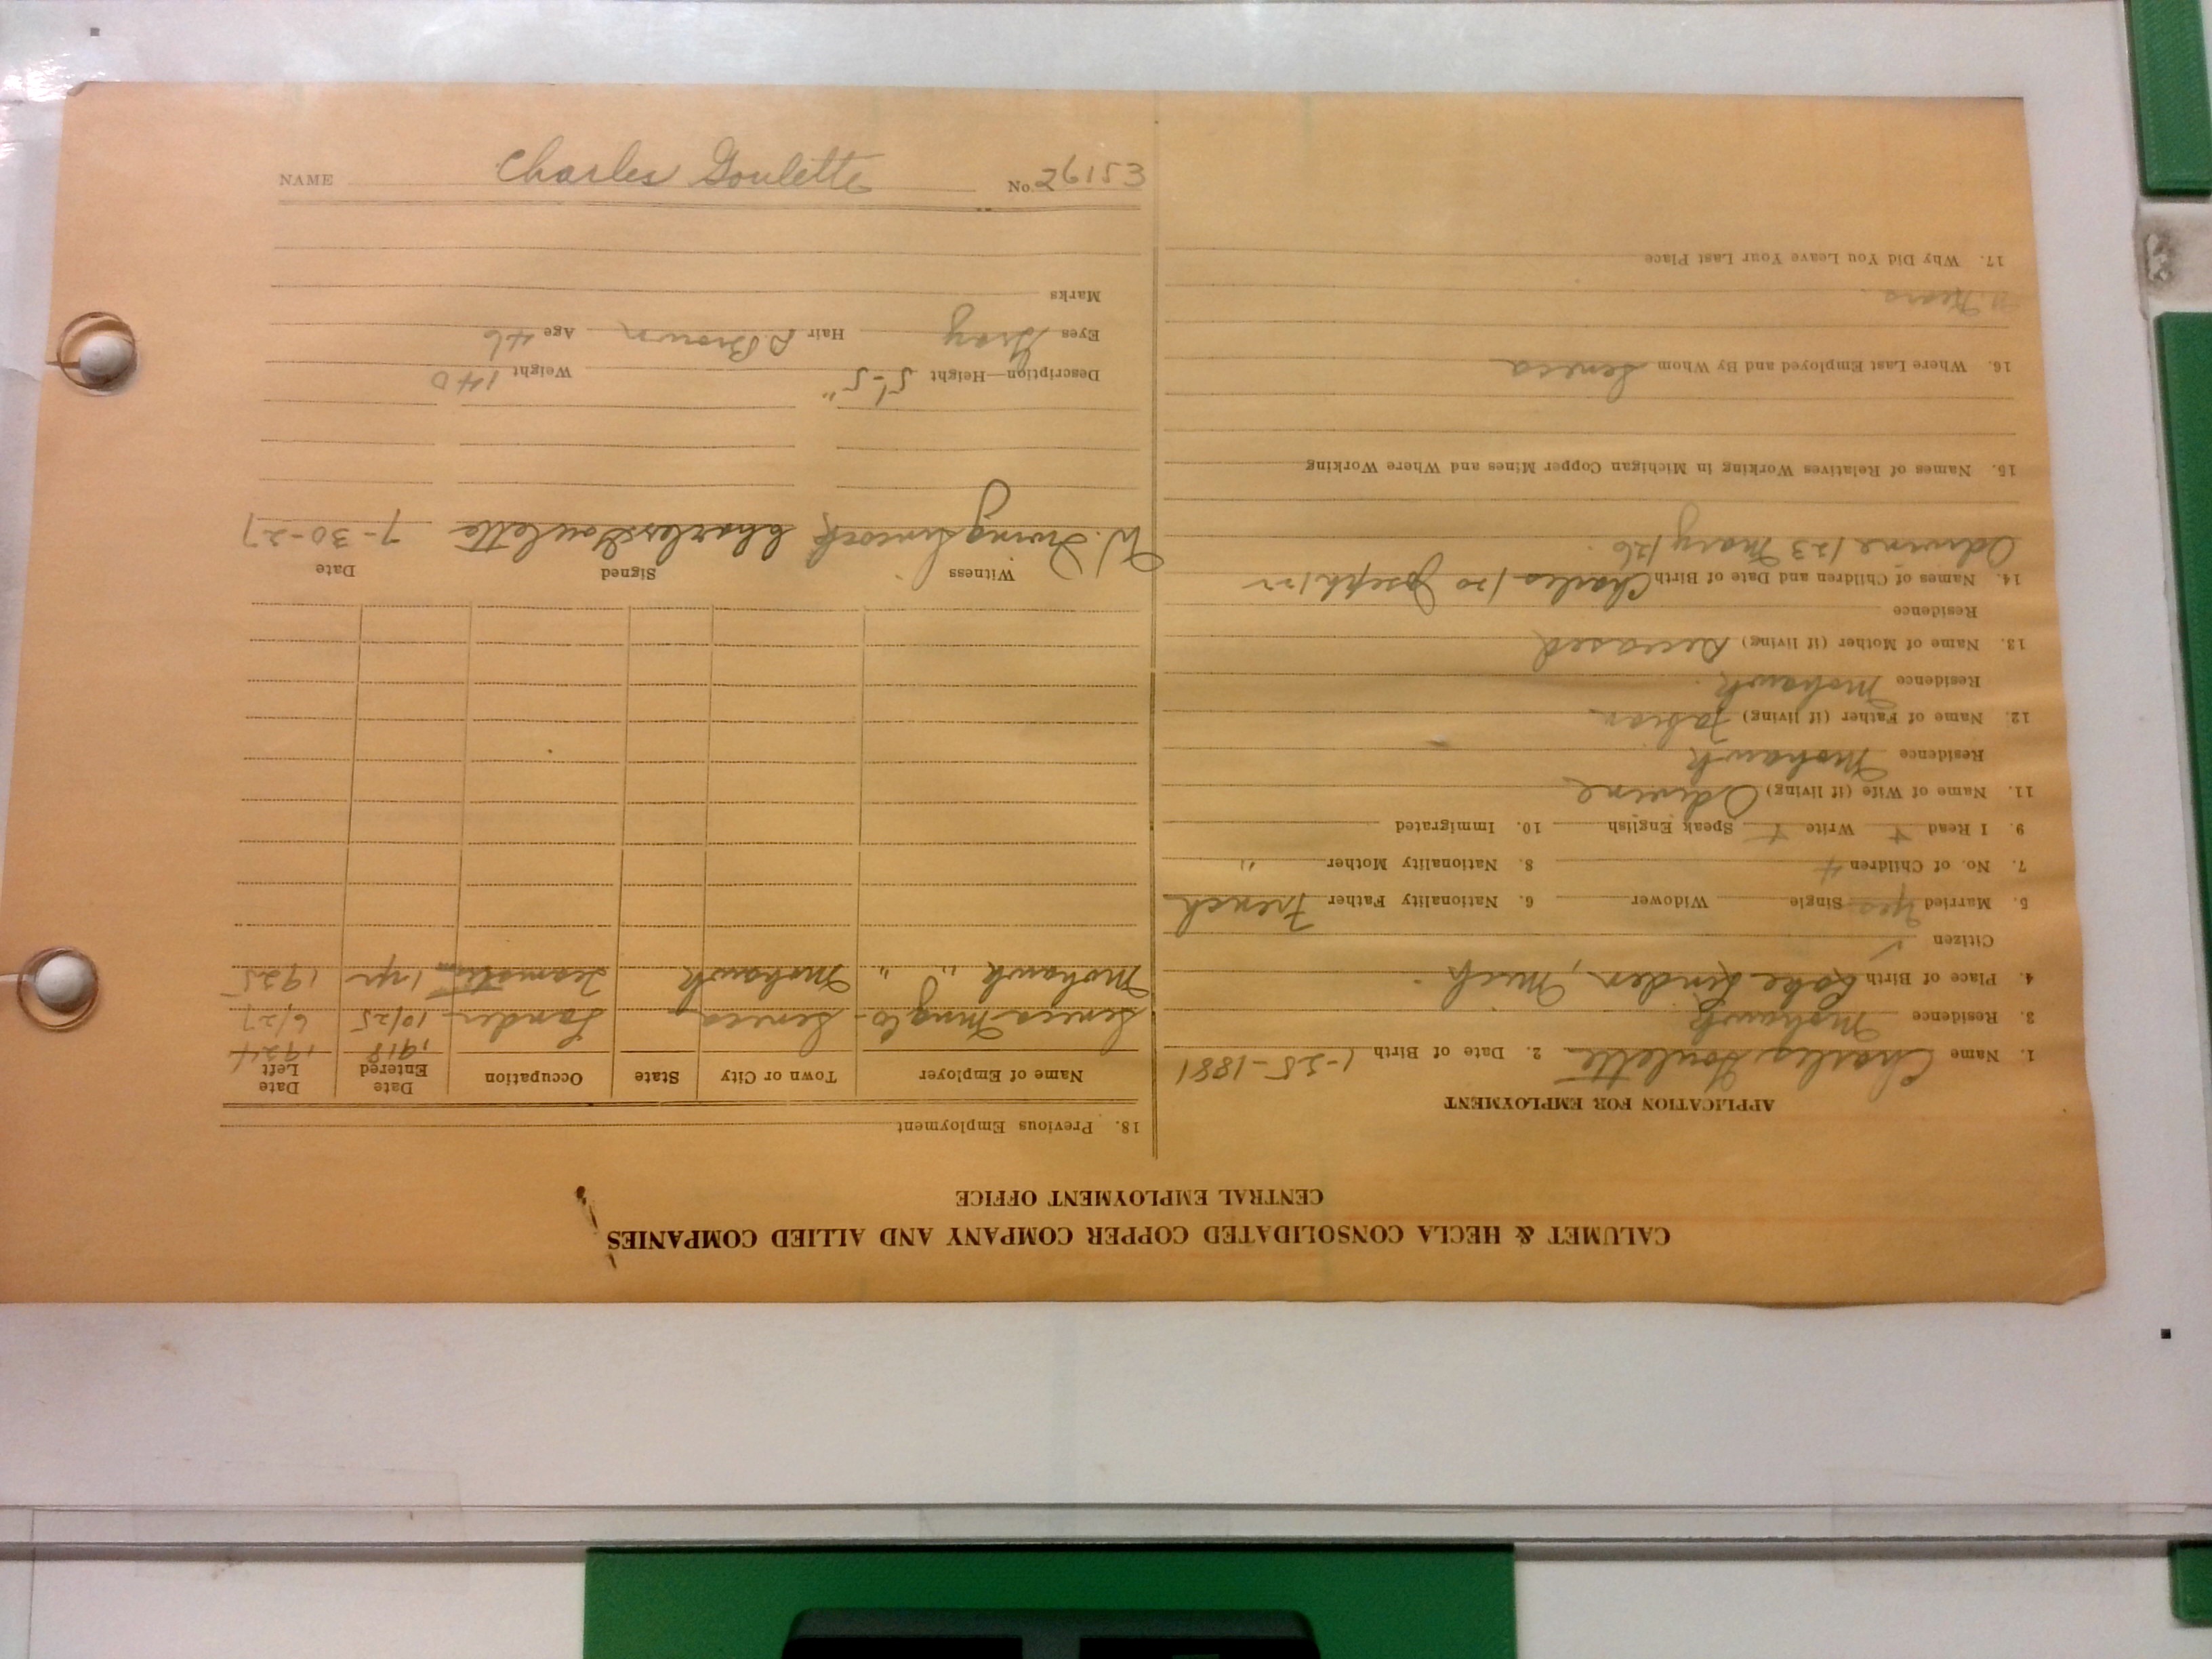 CALUMET & HECLA CONSOLIDATED COPPER COMPANY AND ALLIED COMPANIES
CENTRAL EMPLOYMENT OFFICE
APPLICATION FOR EMPLOYMENT
1. Name Charles Goulette 2. Date of Birth 1-25-1881
3. Residence Mohawk
4. Place of Birth Lake Linden, Mich.
Citizen ✓
5. Married Yes Single Widower 6. Nationality Father French
7. No. of Children 4 8. Nationality Mother "
9. I Read + Write + Speak English 10. Immigrated
11. Name of Wife (if living) Odivine
Residence Mohawk
12. Name of Father (if living) Fabian
Residence Mohawk
13. Name of Mother (if living) Deceased
Residence
14. Names of Children and Date of Birth Charles /20 Joseph /22
/23 Mary /26
15. Names of Relatives Working in Michigan Copper Mines and Where Working
16. Where Last Employed and By Whom Seneca
17. Why Did You Leave Your Last Place
18. Previous Employment
Name of Employer Town or City State Occupation Date Entered Date Left
1918 1924
Seneca Mng Co- Seneca Lander 10/25 6/27
Mohawk " " Mohawk Teamster 1 yr 1925
Witness Signed Date
W. Irving Charles Goulette 7-30-27
Description—Height 5'-5" Weight 140
Eyes Gray Hair D. Brown Age 46
Marks
NAME Charles Goulette No. 26153